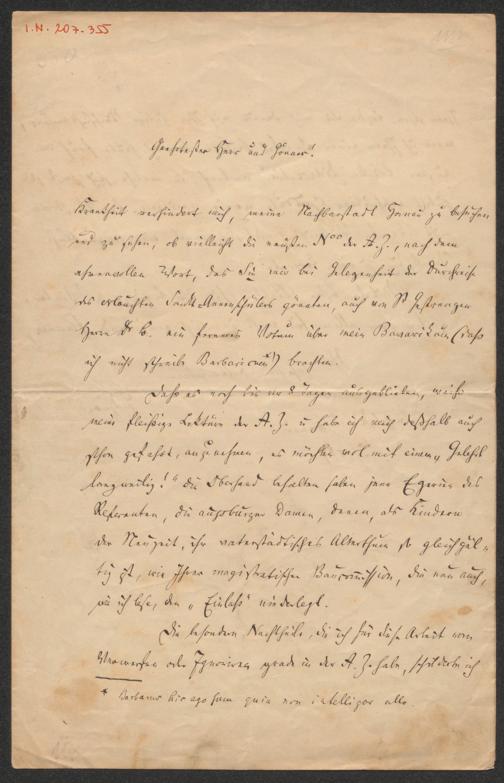 I.N. 207.355
Geehrtester Herr und Gönner!
Krankheit verhindert mich, meine Nachbarstadt Hanau zu besuchen
und zu sehen, ob vielleicht die neusten Nroo der A. Z., nach dem
ehrenvollen Wort, das Sie mir bei Gelegenheit der Durchreise
des erlauchten Sankt-Annenschülers gönnten, auch von Sr Gestrengen
Herrn Dr. ein ferneres Votum über mein Bavaricum (daß
ich nicht schreibe Barbaricum*) brachten.
Daß es noch bis vor 8 Tagen ausgeblieben, weiß
meine fleißige Lektüre der A. Z. u habe ich mich deßhalb auch
schon gefaßt, anzunehmen, es möchten wol mit einem „Gelehrt
langweilig!“ die Oberhand behalten haben jene Egerien des
Referenten, die augsburger Damen, denen, als Kindern
der Neuzeit, ihr vaterstädtisches Alterthum so gleichgül-
tig ist, wie Ihrer magistratischen Baucommission, die nun auch,
wie ich lese, den „Einlaß“ niederlegt.
Die besondern Nachtheile, die ich für diese Arbeit vom
Verwerfen oder Ignoriren grade in der A. Z. habe, schilderte ich
* Barbarus hic ego sum quia non intelligor ulli.